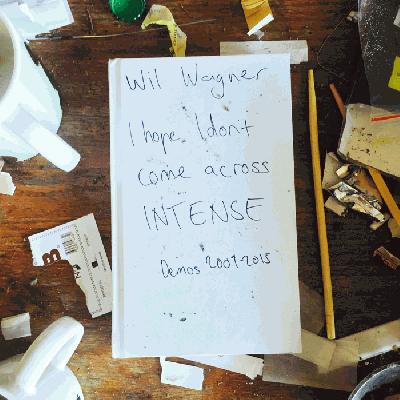 Wil Wagner
I hope I don't
come across
INTENSE
Demos 2009-2015